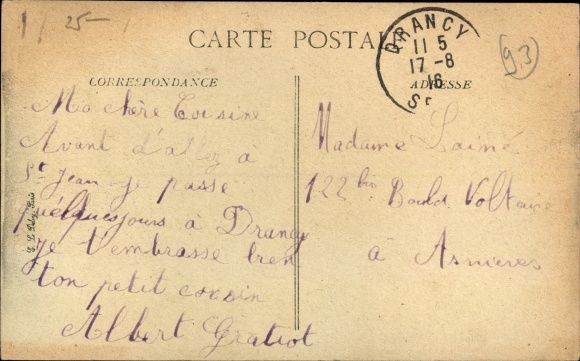 25-
CARTE POSTALE
DRANCY
11 5
17-8
16
Sᵉ
93
CORRESPONDANCE
ADRESSE
Ma chère Cousine
Avant d'aller à
St Jean je passe
quelques jours à Drancy
je t'embrasse bien
ton petit cousin
Albert Gratiot
Madame Lainé
122 bis Bould. Voltaire
à Asnieres